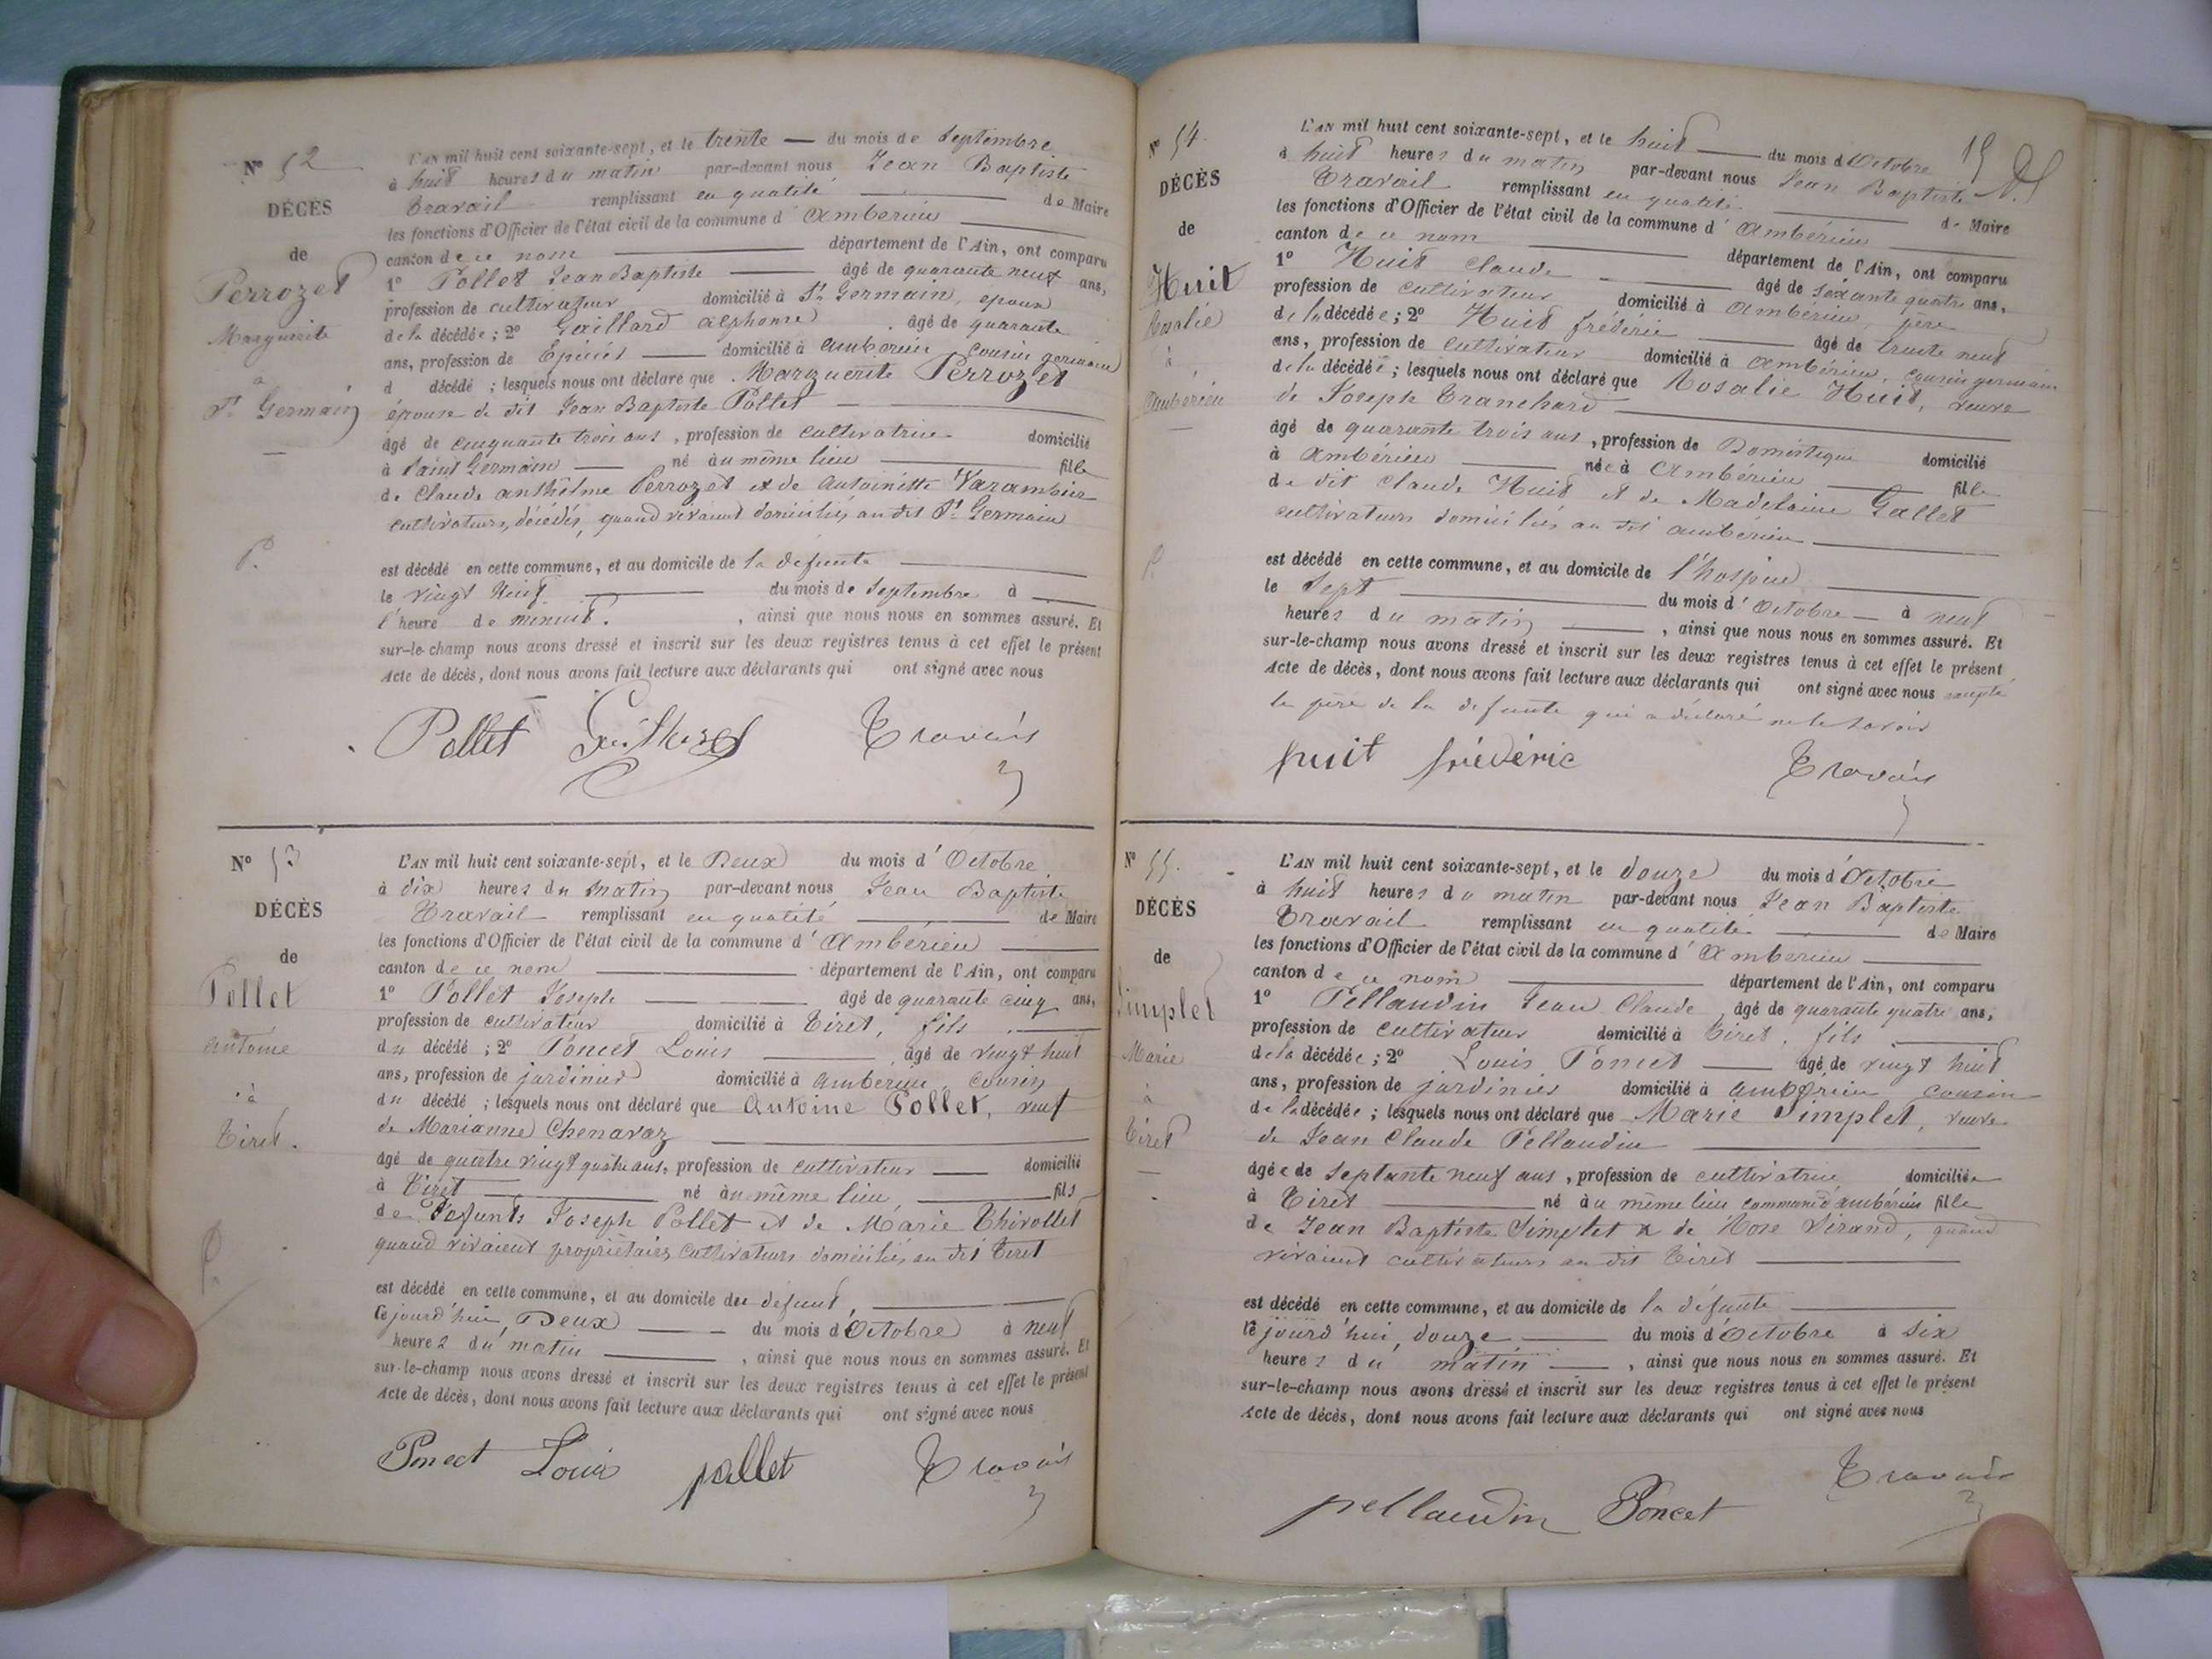 Nº 52
DÉCÈS
de
Perrozet
Marguerite
à
St Germain
P.
L'AN mil huit cent soixante-sept, et le trente — du mois de Septembre
à huit heures du matin par-devant nous Jean Baptiste
Travail remplissant en qualité — de Maire
les fonctions d'Officier de l'état civil de la commune d'Ambérieu
canton de ce nom — département de l'Ain, ont comparu
1º Pollet Jean Baptiste — âgé de quarante neuf ans,
profession de cultivateur domicilié à St Germain, époux
de la décédée ; 2º Gaillard alphonse âgé de quarante
ans, profession de Epicier — domicilié à Ambérieu cousin germain
d décédé ; lesquels nous ont déclaré que Marguerite Perrozet
épouse de dit Jean Baptiste Pollet —
âgé de cinquante trois ans, profession de cultivatrice domicilié
à Saint Germain — né au même lieu — fille
de Claude anthelme Perrozet et de Antoinette Varambier
cultivateurs, décédés, quand vivaient domiciliés au dit St Germain
est décédé en cette commune, et au domicile de la défunte —
le vingt Neuf — du mois de Septembre à —
l'heure de minuit. , ainsi que nous nous en sommes assuré. Et
sur-le-champ nous avons dressé et inscrit sur les deux registres tenus à cet effet le présent
Acte de décès, dont nous avons fait lecture aux déclarants qui ont signé avec nous
Pollet Travail
Nº 53
DÉCÈS
de
Pollet
Antoine
à
Tiret.
P.
L'AN mil huit cent soixante-sept, et le Deux du mois d'Octobre
à dix heures du matin par-devant nous Jean Baptiste
Travail remplissant en qualité — de Maire
les fonctions d'Officier de l'état civil de la commune d'Ambérieu —
canton de ce nom — département de l'Ain, ont comparu
1º Pollet Joseph — âgé de quarante cinq ans,
profession de cultivateur domicilié à Tiret, fils —
du décédé ; 2º Poncet Louis — âgé de vingt huit
ans, profession de jardinier domicilié à Ambérieu, cousin
du décédé ; lesquels nous ont déclaré que Antoine Pollet, veuf
de Marianne Chenavaz —
âgé de quatre vingt quatre ans, profession de cultivateur — domicilié
à Tiret — né au même lieu, — fils
de Défunts Joseph Pollet et de Marie Thirollet
quand vivaient propriétaires cultivateurs domiciliés au dit Tiret
est décédé en cette commune, et au domicile du défunt, —
Cejourd'hui Deux — du mois d'Octobre à neuf
heures du matin — , ainsi que nous nous en sommes assuré. Et
sur-le-champ nous avons dressé et inscrit sur les deux registres tenus à cet effet le présent
Acte de décès, dont nous avons fait lecture aux déclarants qui ont signé avec nous
Poncet Louis pollet Travail
15
Nº 54.
DÉCÈS
de
Huit
Rosalie
à
Ambérieu
P.
L'AN mil huit cent soixante-sept, et le huit — du mois d'Octobre
à huit heures du matin par-devant nous Jean Baptiste
Travail remplissant en qualité — de Maire
les fonctions d'Officier de l'état civil de la commune d'Ambérieu
canton de ce nom — département de l'Ain, ont comparu
1º Huit Claude — âgé de soixante quatre ans,
profession de cultivateur domicilié à Ambérieu, père
de la décédée ; 2º Huit frédéric — âgé de trente neuf
ans, profession de cultivateur domicilié à Ambérieu, cousin germain
de la décédée ; lesquels nous ont déclaré que Rosalie Huit, veuve
de Joseph Tranchard —
âgé de quarante trois ans, profession de Domestique domicilié
à Ambérieu — née à Ambérieu — fille
de dit Claude Huit et de Madelaine Gallet
cultivateurs domiciliés au dit Ambérieu —
est décédé en cette commune, et au domicile de l'hospice —
le Sept — du mois d'Octobre — à neuf
heures du matin — , ainsi que nous nous en sommes assuré. Et
sur-le-champ nous avons dressé et inscrit sur les deux registres tenus à cet effet le présent
Acte de décès, dont nous avons fait lecture aux déclarants qui ont signé avec nous excepté
le père de la défunte qui a déclaré ne le savoir
huit frédéric Travail
Nº 55.
DÉCÈS
de
Simplet
Marie
à
Tiret
L'AN mil huit cent soixante-sept, et le douze du mois d'Octobre
à huit heures du matin par-devant nous Jean Baptiste
Travail remplissant en qualité — de Maire
les fonctions d'Officier de l'état civil de la commune d'Ambérieu —
canton de ce nom — département de l'Ain, ont comparu
1º Pellaudin Jean Claude âgé de quarante quatre ans,
profession de cultivateur domicilié à Tiret, fils —
de la décédée ; 2º Louis Poncet — âgé de vingt huit
ans, profession de jardinier domicilié à Ambérieu cousin
de la décédée ; lesquels nous ont déclaré que Marie Simplet, veuve
de Jean Claude Pellaudin —
âgée de Septante neuf ans, profession de cultivatrice domiciliée
à Tiret — né au même lieu commune d'ambérieu fille
de Jean Baptiste Simplet & de Rose Virand, quand
vivaient cultivateurs au dit Tiret —
est décédé en cette commune, et au domicile de la défunte —
le jourd'hui douze — du mois d'Octobre à six
heures du matin — , ainsi que nous nous en sommes assuré. Et
sur-le-champ nous avons dressé et inscrit sur les deux registres tenus à cet effet le présent
Acte de décès, dont nous avons fait lecture aux déclarants qui ont signé avec nous
Travail
pellaudin Poncet